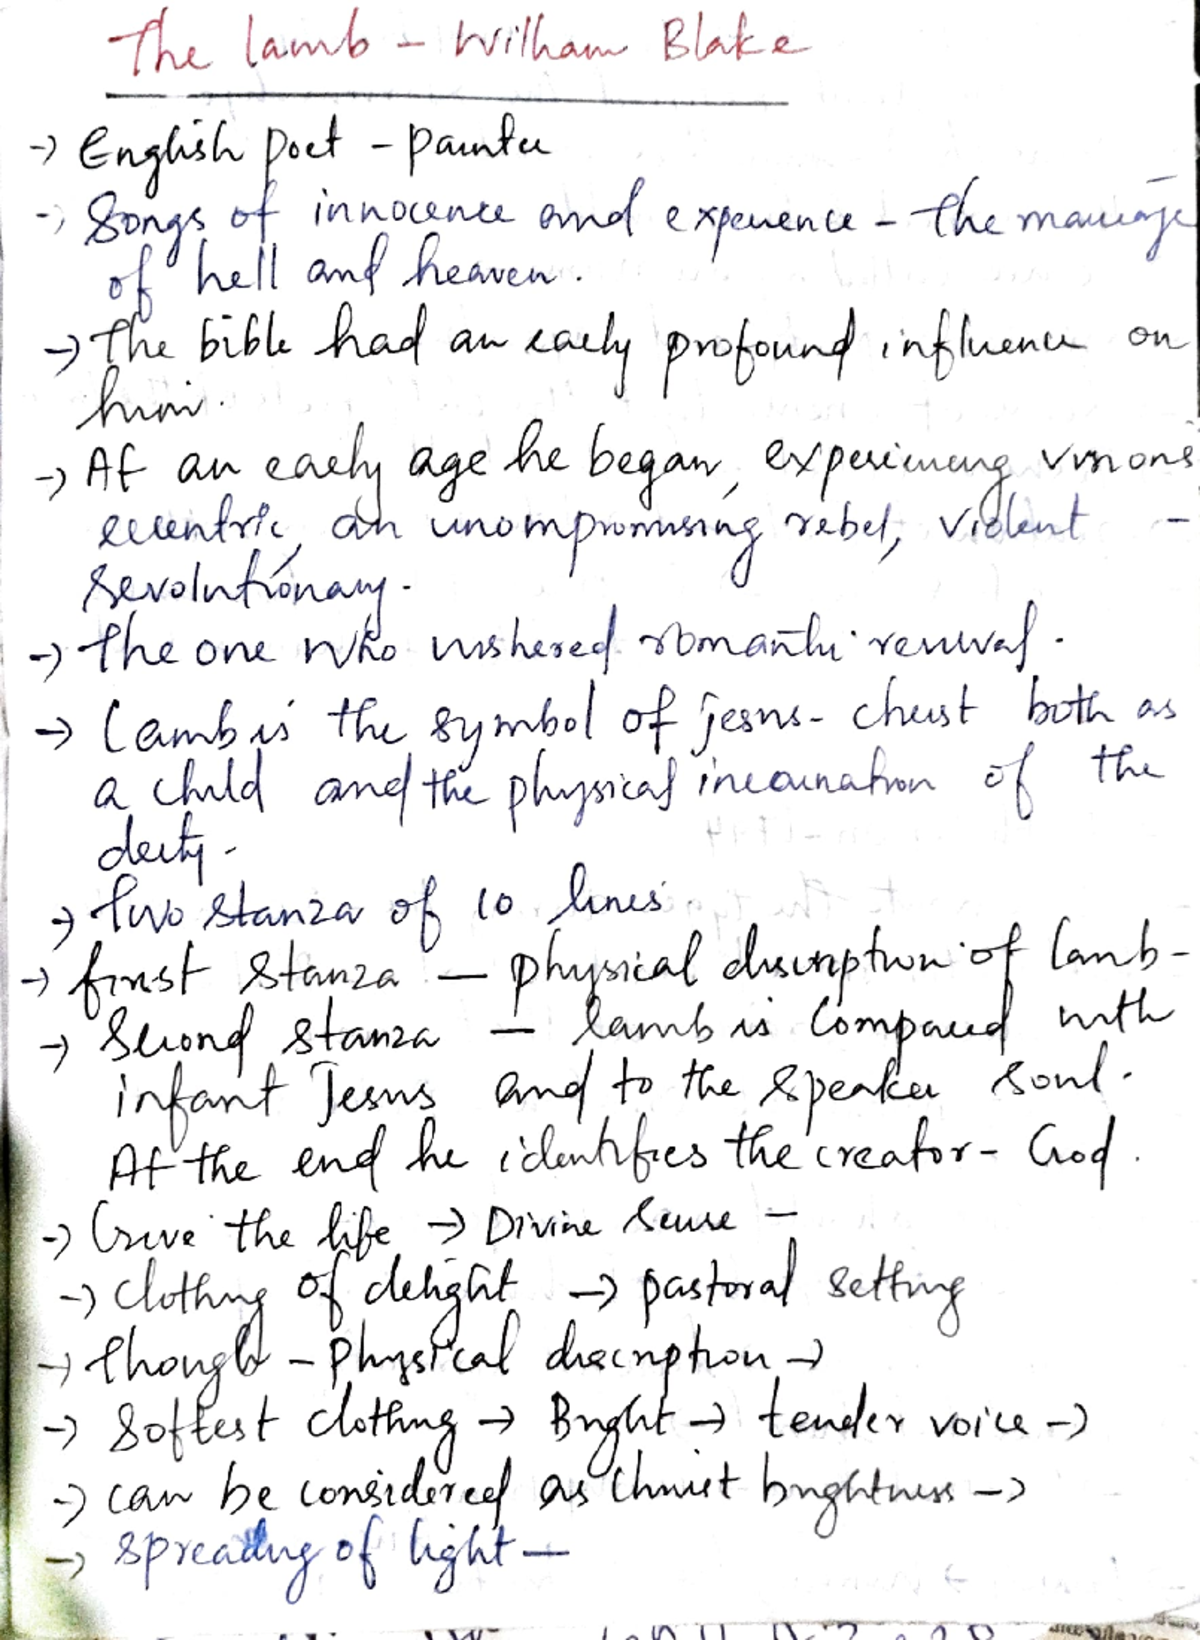 The Lamb - William Blake
-> English Poet - Painter
-> Songs of innocence and experience - The marriage
of hell and heaven.
-> The bible had an early profound influence on
him.
-> At an early age he began, experiencing visions
eccentric, an uncompromising rebel, violent -
revolutionary.
-> The one who ushered romantic revival.
-> Lamb is the symbol of Jesus - christ both as
a child and the physical incarnation of the
deity -
-> Two stanza of 10 lines
-> first stanza — physical discription of lamb -
-> Second stanza — lamb is compared with
infant Jesus and to the speaker soul.
At the end he identifies the creator - God.
-> Give the life -> Divine sense -
-> Clothing of delight -> pastoral setting
-> though - Physical discription ->
-> Softest clothing -> Bright -> tender voice ->
-> can be considered as Christ brightness ->
-> spreading of light —